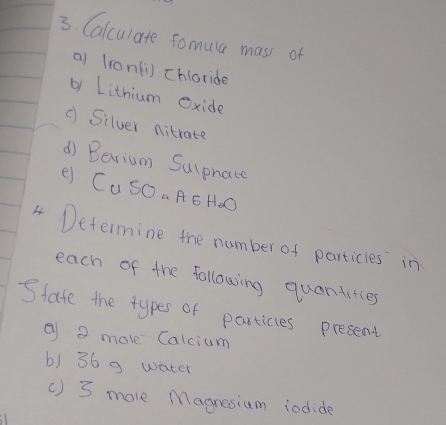 3. Calculate fomula mass of
a) Iron(ii) chloride
b) Lithium Oxide
c) Silver nitrate
d) Barium Sulphate
e) CuSO4 A 5 H2O
4 Determine the number of particles in
each of the following quantities
State the types of particles present
a) 2 mole Calcium
b) 36 g water
c) 3 mole Magnesium iodide